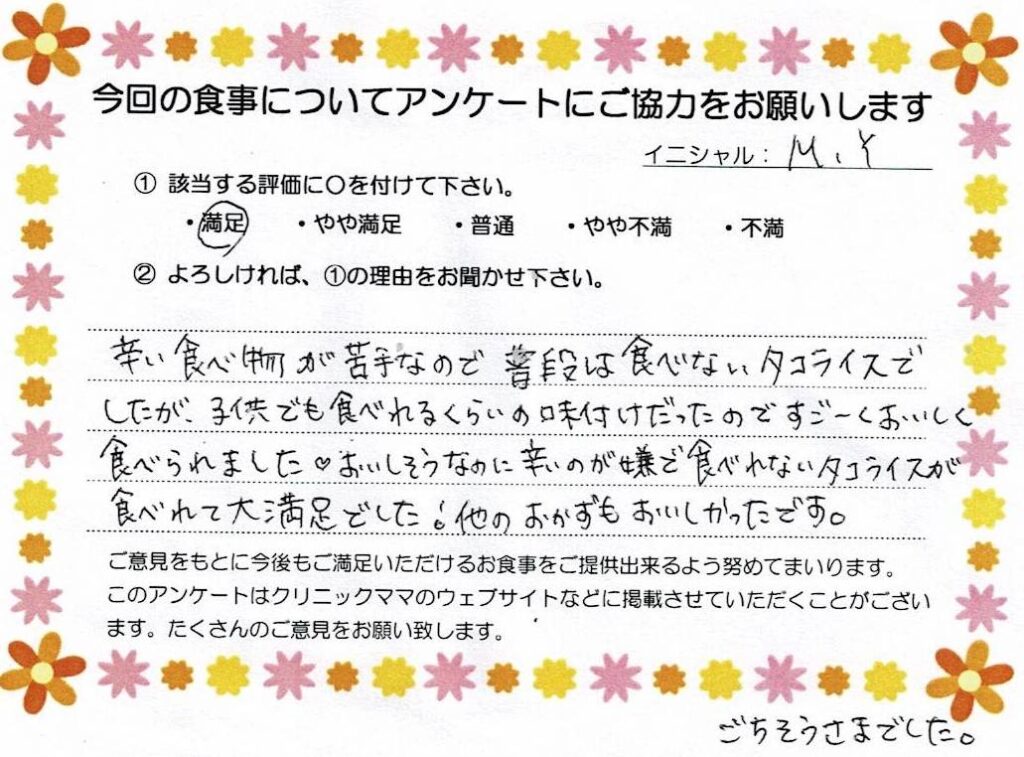 今回の食事についてアンケートにご協力をお願いします
イニシャル： M.Y
① 該当する評価に〇を付けて下さい。
・満足 ・やや満足 ・普通 ・やや不満 ・不満
② よろしければ、①の理由をお聞かせ下さい。
辛い食べ物が苦手なので 普段は食べないタコライスで
したが、子供でも食べれるくらいの味付けだったのですごーくおいしく
食べられました♡おいしそうなのに辛いのが嫌で食べれないタコライスが
食べれて大満足でした!他のおかずもおいしかったです。
ご意見をもとに今後もご満足いただけるお食事をご提供出来るよう努めてまいります。
このアンケートはクリニックママのウェブサイトなどに掲載させていただくことがござい
ます。たくさんのご意見をお願い致します。
ごちそうさまでした。